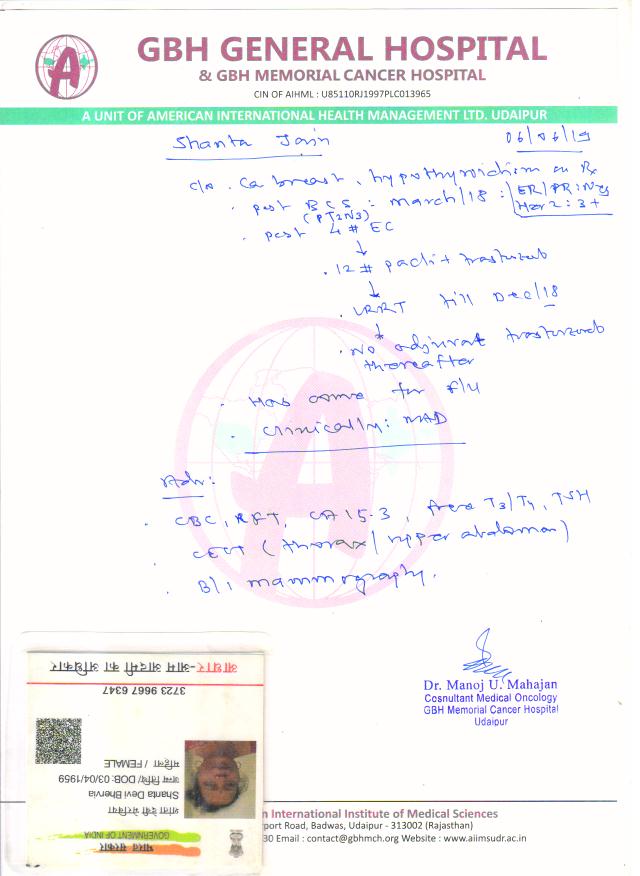 A
GBH GENERAL HOSPITAL
& GBH MEMORIAL CANCER HOSPITAL
CIN OF AIHML : U85110RJ1997PLC013965
A UNIT OF AMERICAN INTERNATIONAL HEALTH MANAGEMENT LTD. UDAIPUR
Shanta Jain
06/06/19
c/o . Ca breast, hypothyroidism on Rx
. post BCS : March/18 : ER/PR:
Her 2 : 3+
(PT2N3)
. post 4 # EC
↓
. 12 # pacli + trastuzub
↓
RT till Dec/18
↓
. No adjuvat trastuzueb
thereafter
. Has come for f/u
. Clinically: NAD
Adv:
. CBC, RFT, CA 15-3, Free T3/T4, TSH
. CECT (thorax/upper abdomen)
. B/l mammography.
Dr. Manoj U. Mahajan
Cosnultant Medical Oncology
GBH Memorial Cancer Hospital
Udaipur
n International Institute of Medical Sciences
port Road, Badwas, Udaipur - 313002 (Rajasthan)
30 Email : contact@gbhmch.org Website : www.aiimsudr.ac.in
भारत सरकार
GOVERNMENT OF INDIA
शान्ता देवी भेरविया
Shanta Devi Bhervia
जन्म तिथि/ DOB: 03/04/1959
महिला / FEMALE
3723 9667 6347
आधार-आम आदमी का अधिकार